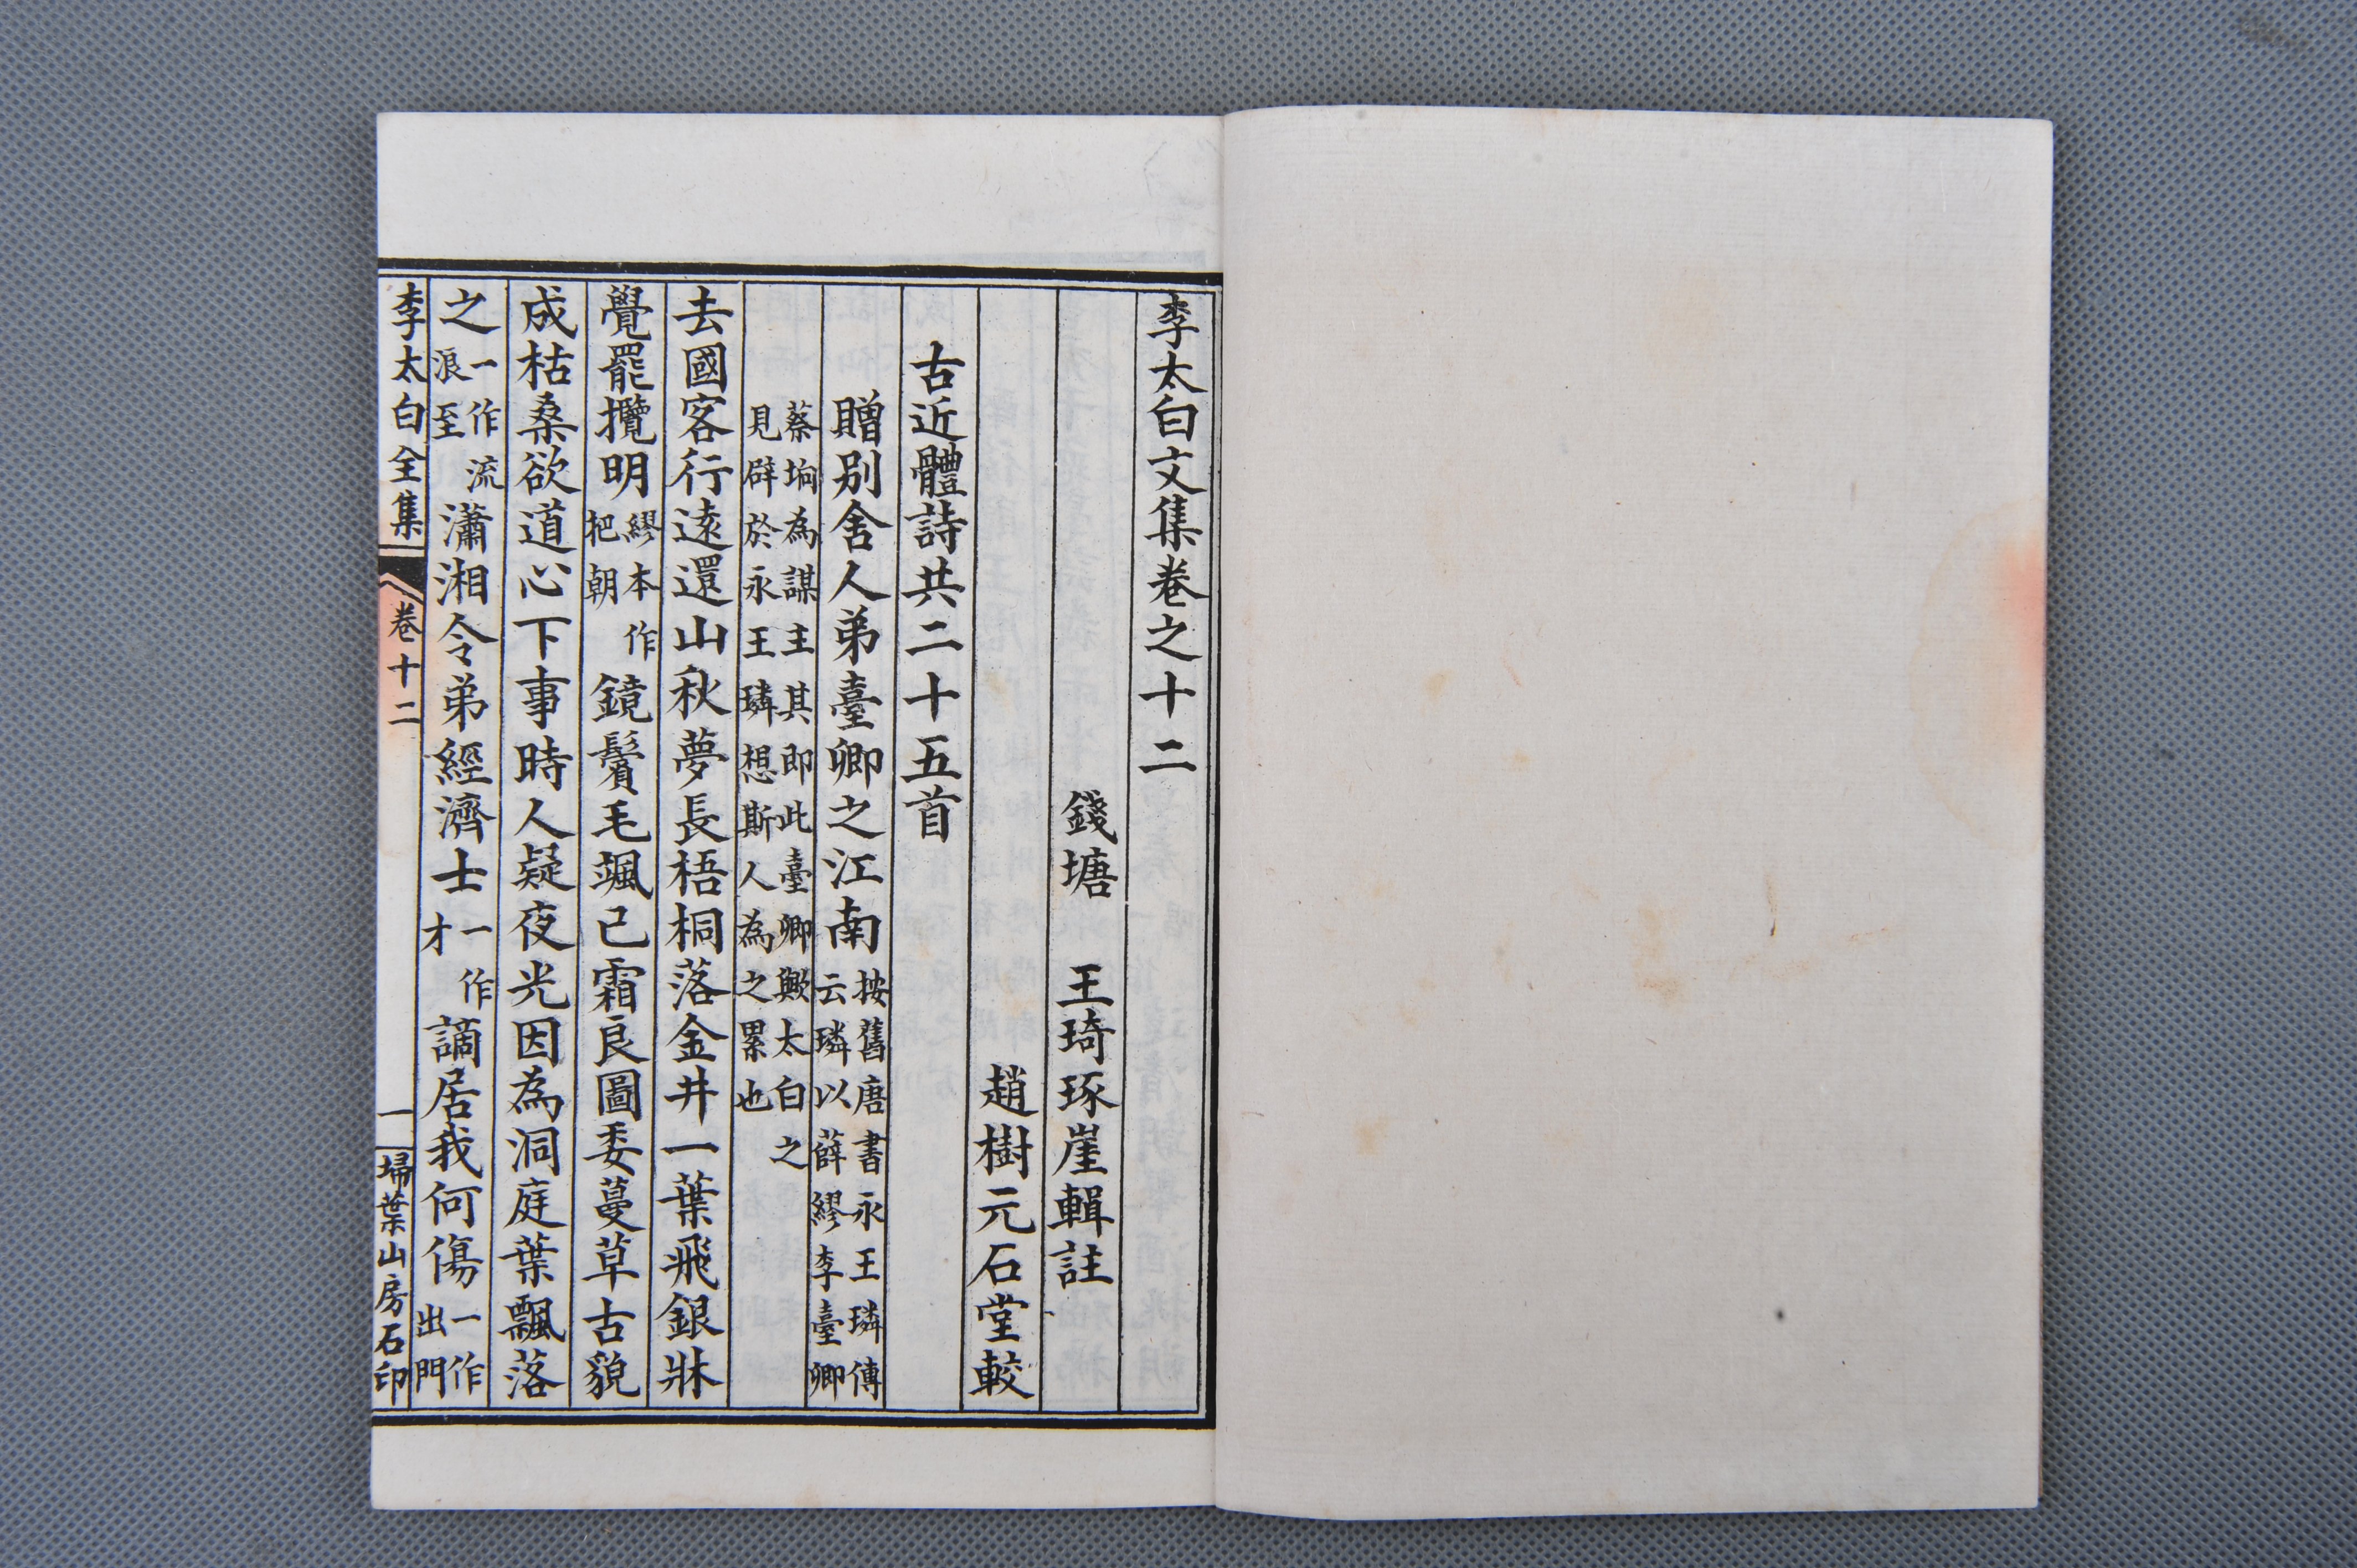 李太白文集卷之十二
錢塘 王琦琢崖輯註
趙樹元石堂較
古近體詩共二十五首
贈別舍人弟臺卿之江南按舊唐書永王璘傳云璘以薛繆李臺卿
蔡坰為謀主其即此臺卿歟太白之見辟於永王璘想斯人為之累也
去國客行遠還山秋夢長梧桐落金井一葉飛銀牀
覺罷攬明繆本作把朝鏡鬢毛颯已霜良圖委蔓草古貌
成枯桑欲道心下事時人疑夜光因為洞庭葉飄落
之一作流浪至瀟湘令弟經濟士一作才謫居我何傷一作出門
李太白全集 卷十二 一 埽葉山房石印